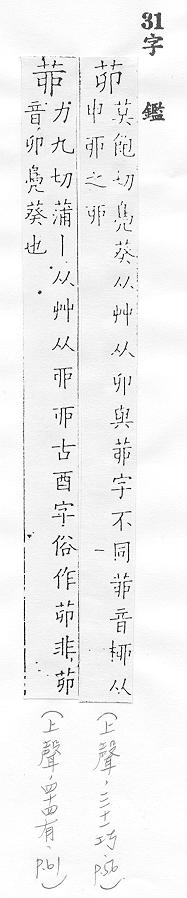 31字鑑
茆 莫飽切鳧葵从艸从卯與茆字不同茆音栁从
申丣之丣
茆 力九切蒲丨从艸从丣丣古酉字俗作茆非茆
音卯鳧葵也
(上聲，三十一巧，P.56)
(上聲，四十四有，P.61)